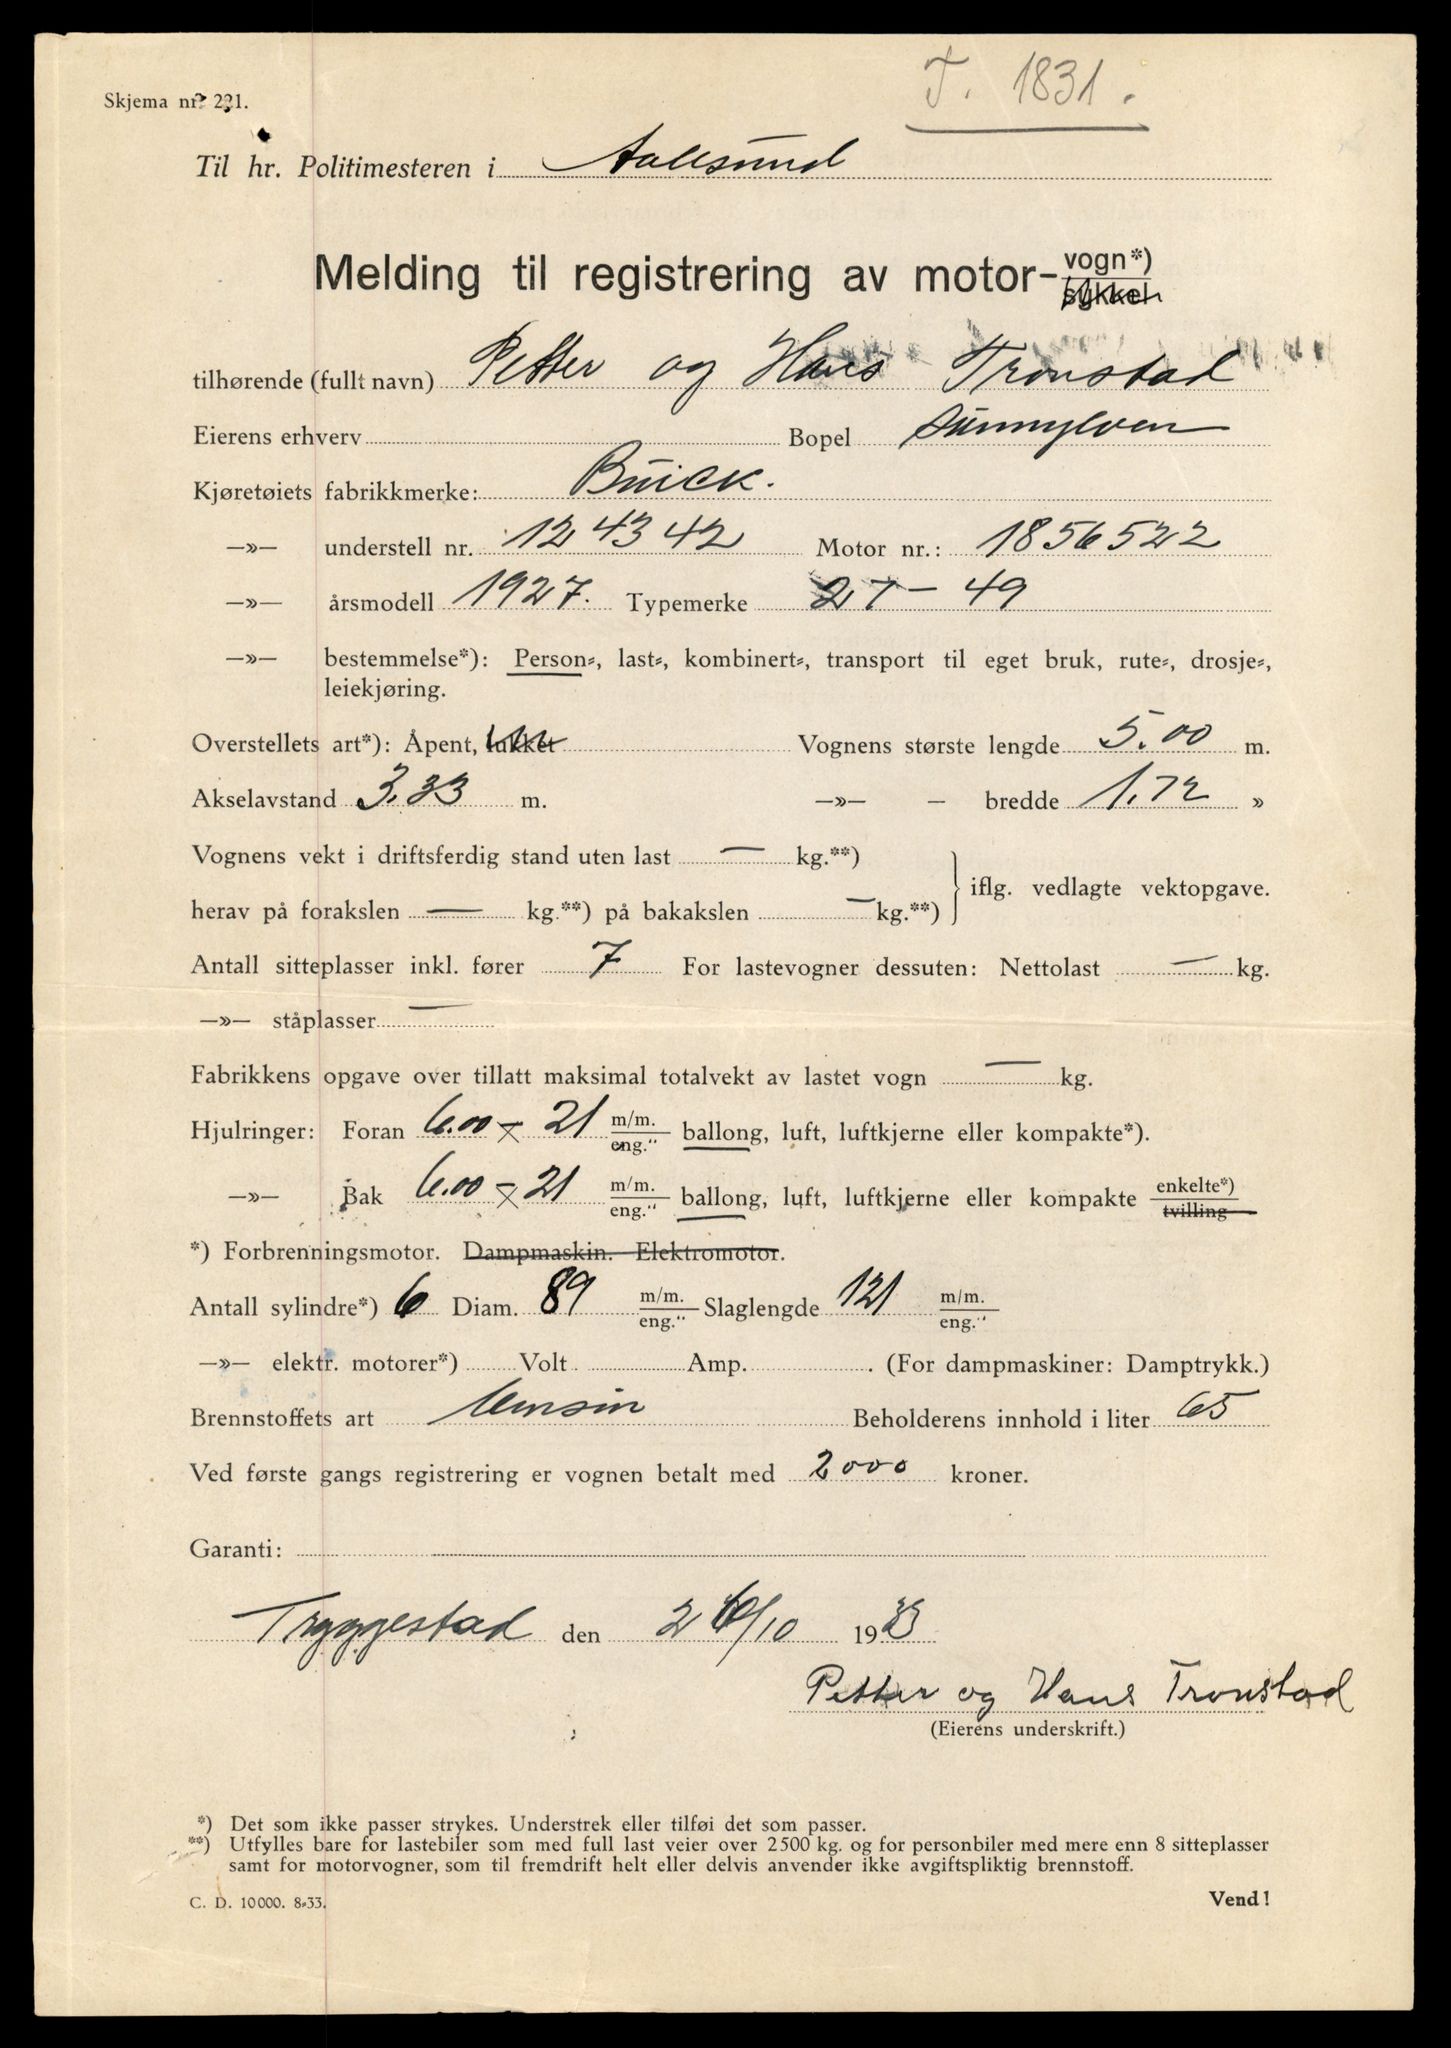 T. 1831.
Skjema nr. 221.
Til hr. Politimesteren i Aalesund
Melding til registrering av motor- vogn*)
sykkel
tilhørende (fullt navn) Petter og Hans Tronstad
Eierens erhverv Bopel Sunnylven
Kjøretøiets fabrikkmerke: Buick.
—»— understell nr. 124342 Motor nr.: 1856522
—»— årsmodell 1927. Typemerke 27 — 49
—»— bestemmelse*): Person-, last-, kombinert-, transport til eget bruk, rute-, drosje-,
leiekjøring.
Overstellets art*): Åpent, lukket Vognens største lengde 5.00 m.
Akselavstand 3.33 m. —»— — bredde 1.72 »
Vognens vekt i driftsferdig stand uten last — kg.**)
herav på forakslen — kg.**) på bakakslen — kg.**) iflg. vedlagte vektopgave.
Antall sitteplasser inkl. fører 7 For lastevogner dessuten: Nettolast — kg.
—»— ståplasser —
Fabrikkens opgave over tillatt maksimal totalvekt av lastet vogn — kg.
Hjulringer: Foran 6.00 × 21 m/m. eng." ballong, luft, luftkjerne eller kompakte*).
—»— Bak 6.00 × 21 m/m. eng." ballong, luft, luftkjerne eller kompakte enkelte*) tvilling
*) Forbrenningsmotor. Dampmaskin. Elektromotor.
Antall sylindre*) 6 Diam. 89 m/m. eng." Slaglengde 121 m/m. eng."
—»— elektr. motorer*) Volt Amp. . (For dampmaskiner: Damptrykk.)
Brennstoffets art Bensin Beholderens innhold i liter 65
Ved første gangs registrering er vognen betalt med 2000 kroner.
Garanti:
Tryggestad den 26/10 1933
Petter og Hans Tronstad
(Eierens underskrift.)
*) Det som ikke passer strykes. Understrek eller tilføi det som passer.
**) Utfylles bare for lastebiler som med full last veier over 2500 kg. og for personbiler med mere enn 8 sitteplasser
samt for motorvogner, som til fremdrift helt eller delvis anvender ikke avgiftspliktig brennstoff.
C. D. 10000. 8-33. Vend!